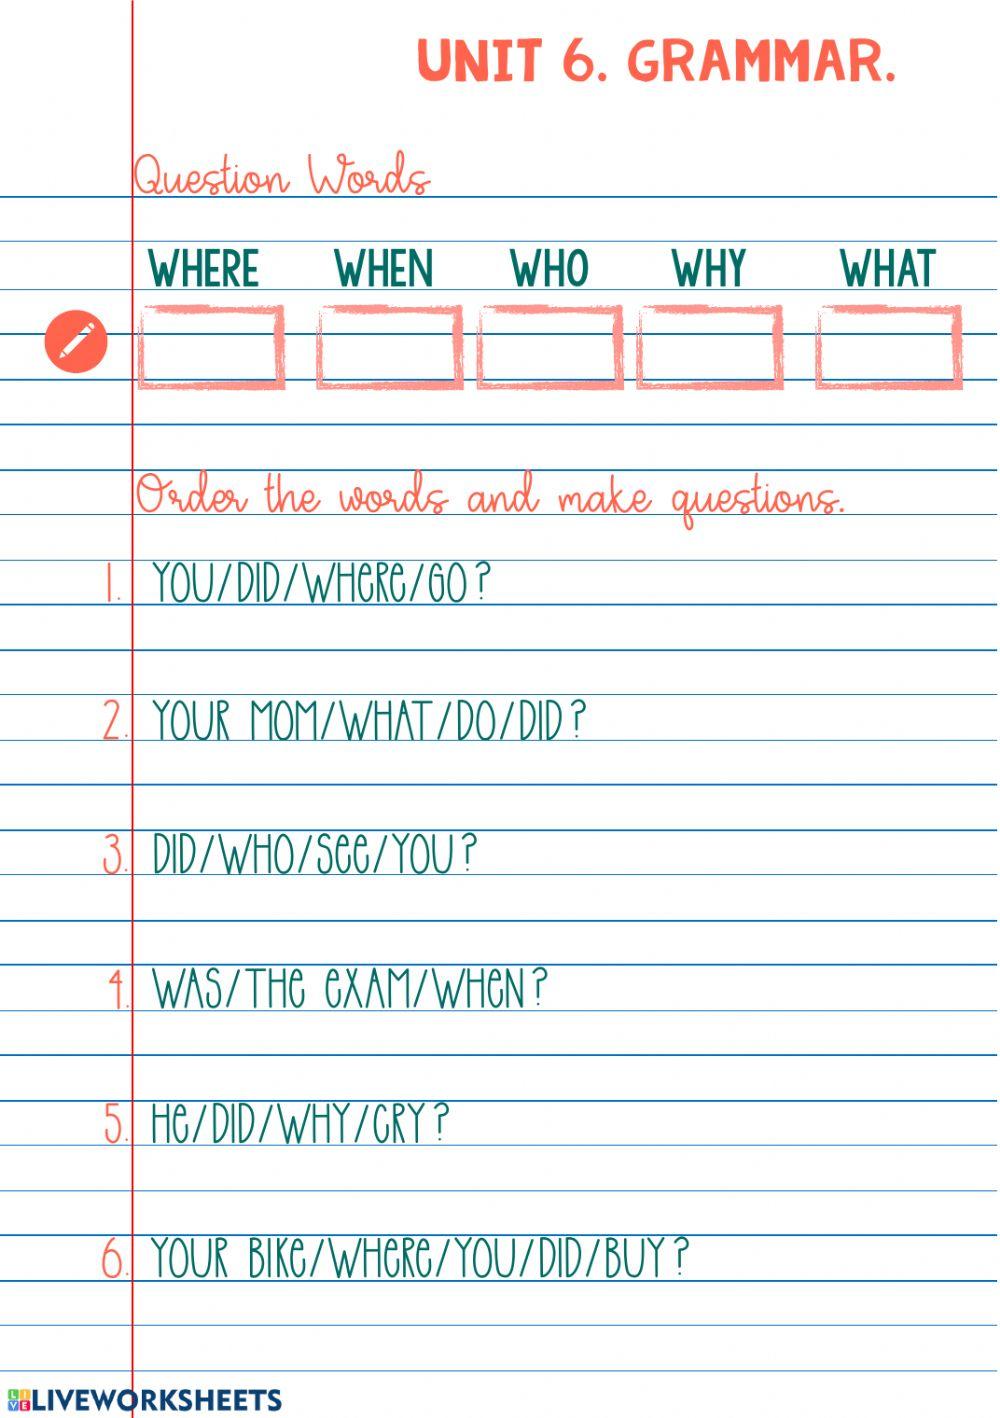 UNIT 6. GRAMMAR.
Question Words
WHERE WHEN WHO WHY WHAT
Order the words and make questions.
1. YOU/DID/WHeRe/GO?
2. YOUR MOM/WHAT/DO/DID?
3. DID/WHO/See/YOU?
4. WAS/THe eXAM/WHeN?
5. He/DID/WHY/CRY?
6. YOUR BIKe/WHeRe/YOU/DID/BUY?
LIVE LIVEWORKSHEETS